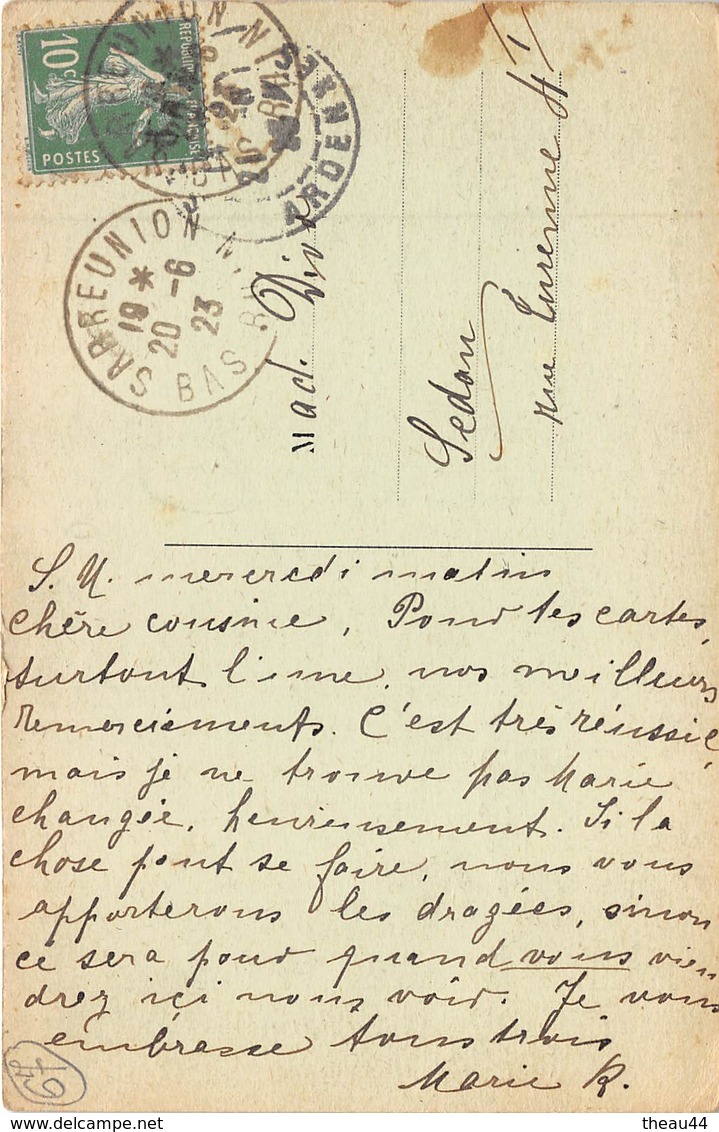 10c
REPUBLIQUE FRANÇAISE
POSTES
ARDENNES
SARREUNION
BAS
19 *
20 - 6
23
Mad. Divo
Sedan
rue Turenne 41
S. U. mercredi matin
Chère cousine, Pour tes cartes,
surtout l'une, nos meilleurs
remerciements. C'est très réussie,
mais je ne trouve pas Marie
changée, heureusement. Si la
chose peut se faire, nous vous
apporterons les dragées, sinon
ce sera pour quand vous vien
drez ici nous voir. Je vous
embrasse tous trois
Marie R.
theau44